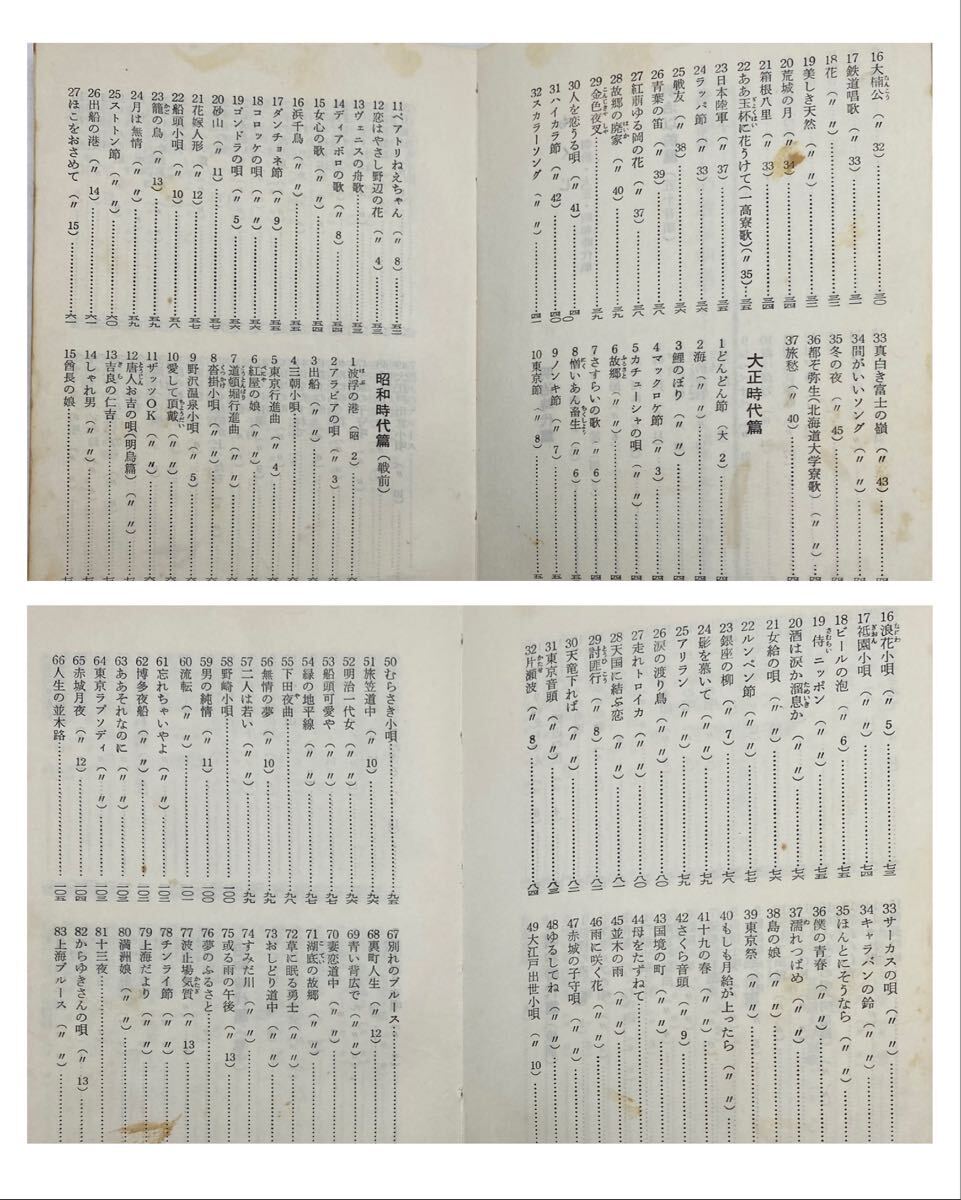 16大楠公（〃 32）…三〇
17鉄道唱歌（〃 33）…三一
18花（〃 〃）…三一
19美しき天然（〃 〃）…三二
20荒城の月（〃 34）…三四
21箱根八里（〃 33）…三四
22ああ玉杯に花うけて（一高寮歌）（〃 35）…三五
23日本陸軍（〃 37）…三五
24ラッパ節（〃 33）…三六
25戦友（〃 38）
26青葉の笛（〃 39）…三八
27紅萠ゆる岡の花（〃 37）…三八
28故郷の廃家（〃 40）…三九
29金色夜叉…三九
30人を恋うる唄（〃 41）…四〇
31ハイカラ節（〃 42）…四〇
32スカラーソング（〃 〃）…四一
33真白き富士の嶺（〃 43）
34間がいいソング（〃 〃）
35冬の夜（〃 45）
36都ぞ弥生（北海道大学寮歌）（〃 〃）
37旅愁（〃 40）
大正時代篇
1どんどん節（大 2）
2海（〃 〃）
3鯉のぼり（〃 〃）
4マックロケ節（〃 3）
5カチューシャの唄（〃 〃）
6故郷（〃 〃）
7さすらいの歌（〃 6）
8憎いあん畜生（〃 6）
9ノンキ節（〃 7）
10東京節（〃 8）
11ベアトリねえちゃん（〃 8）…五二
12恋はやさし野辺の花（〃 4）…五三
13ヴェニスの舟歌…五三
14ディアボロの歌（〃 8）…五四
15女心の歌（〃 〃）…五四
16浜千鳥（〃 〃）…五五
17ダンチョネ節（〃 9）…五五
18コロッケの唄（〃 〃）…五六
19ゴンドラの唄（〃 5）…五六
20砂山（〃 11）…五七
21花嫁人形（〃 12）…五七
22船頭小唄（〃 10）…五八
23籠の鳥（〃 13）…五九
24月は無情（〃 〃）…五九
25ストトン節（〃 〃）…六〇
26出船の港（〃 14）…六一
27ほこをおさめて（〃 15）…六一
昭和時代篇（戦前）
1波浮の港（昭 2）
2アラビアの唄（〃 3）
3出船（〃 〃）
4三朝小唄
5東京行進曲（〃 4）
6紅屋の娘（〃 〃）
7道頓堀行進曲（〃 〃）
8沓掛小唄（〃 〃）
9野沢温泉小唄（〃 5）
10愛して頂戴（〃 〃）
11ザッツOK（〃 〃）
12唐人お吉の唄（明烏篇）（〃 〃）
13吉良の仁吉
14しゃれ男（〃 〃）
15酋長の娘
16浪花小唄（〃 5）…七三
17祇園小唄（〃 〃）…七四
18ビールの泡（〃 6）…七五
19侍ニッポン（〃 〃）…七五
20酒は涙か溜息か（〃 〃）
21女給の唄（〃 〃）
22ルンペン節（〃 〃）
23銀座の柳（〃 7）…七八
24影を慕いて（〃 〃）…七九
25アリラン（〃 〃）…七九
26涙の渡り鳥（〃 〃）…八〇
27走れトロイカ（〃 〃）
28天国に結ぶ恋（〃 〃）…八一
29討匪行（〃 8）…八二
30天竜下れば（〃 〃）…八二
31東京音頭（〃 〃）…八三
32片瀬波（〃 8）…八四
33サーカスの唄（〃 〃）
34キャラバンの鈴（〃 〃）
35ほんとにそうなら（〃 〃）
36僕の青春（〃 〃）
37濡れつばめ（〃 〃）
38島の娘（〃 〃）
39東京祭（〃 〃）
40もしも月給が上ったら（〃 〃）
41十九の春（〃 〃）
42さくら音頭（〃 9）
43国境の町（〃 〃）
44母をたずねて（〃 〃）
45並木の雨（〃 〃）
46雨に咲く花（〃 〃）
47赤城の子守唄（〃 〃）
48ゆるしてね（〃 〃）
49大江戸出世小唄（〃 10）
50むらさき小唄…九五
51旅笠道中（〃 10）…九六
52明治一代女（〃 〃）…九六
53船頭可愛や（〃 〃）…九七
54緑の地平線（〃 〃）…九七
55下田夜曲…九八
56無情の夢（〃 10）…九九
57二人は若い（〃 〃）…九九
58野崎小唄…一〇〇
59男の純情（〃 11）…一〇〇
60流転（〃 〃）…一〇一
61忘れちゃいやよ（〃 〃）…一〇二
62博多夜船（〃 〃）…一〇三
63ああそれなのに（〃 〃）…一〇三
64東京ラプソディ（〃 〃）…一〇四
65赤城月夜（〃 12）…一〇四
66人生の並木路…一〇五
67別れのブルース
68裏町人生（〃 12）
69青い背広で（〃 〃）
70妻恋道中（〃 〃）
71湖底の故郷（〃 〃）
72草に眠る勇士（〃 〃）
73おしどり道中（〃 〃）
74すみだ川（〃 〃）
75或る雨の午後（〃 13）
76夢のふるさと
77波止場気質（〃 13）
78チンライ節（〃 〃）
79上海だより（〃 〃）
80満洲娘（〃 〃）
81十三夜
82からゆきさんの唄（〃 13）
83上海ブルース（〃 〃）